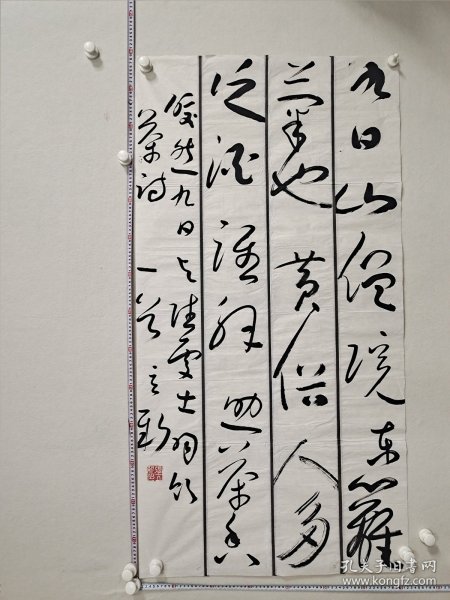 九日山僧院东籬
菊也黄俗人多
泛酒谁解助茶香
皎然九日与陆处士羽饮
茶诗一首
孔夫子旧书网
www.kongfz.com